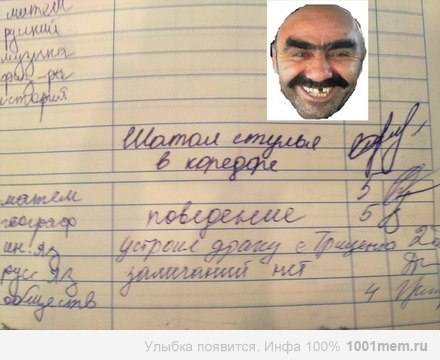 матем
руский
музыка
физ-ра
история
Шатал стулья
в коредре
матем 5
географ поведение 5
ин. яз устроил драку с Гриценко 2
рус яз замичаний нет
обществ 4
Улыбка появится. Инфа 100% 1001mem.ru